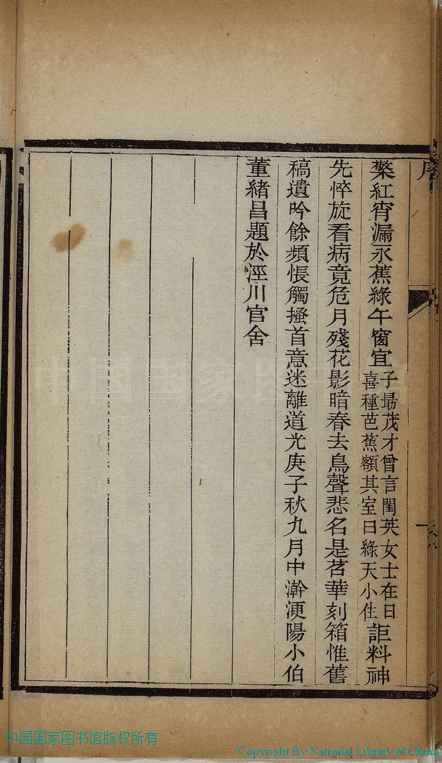 檠紅宵漏永蕉綠午窗宜子最茂才曾言閨英女士在日喜種芭蕉額其室曰綠天小住詎料神
先悴旋看病竟危月殘花影暗春去鳥聲悲名是苕華刻箱惟舊
稿遺吟餘頻悵觸搔首意迷離道光庚子秋九月中澣浭陽小伯
董緒昌題於涇川官舍
中国国家图书馆版权所有
Copyright By National Library of China